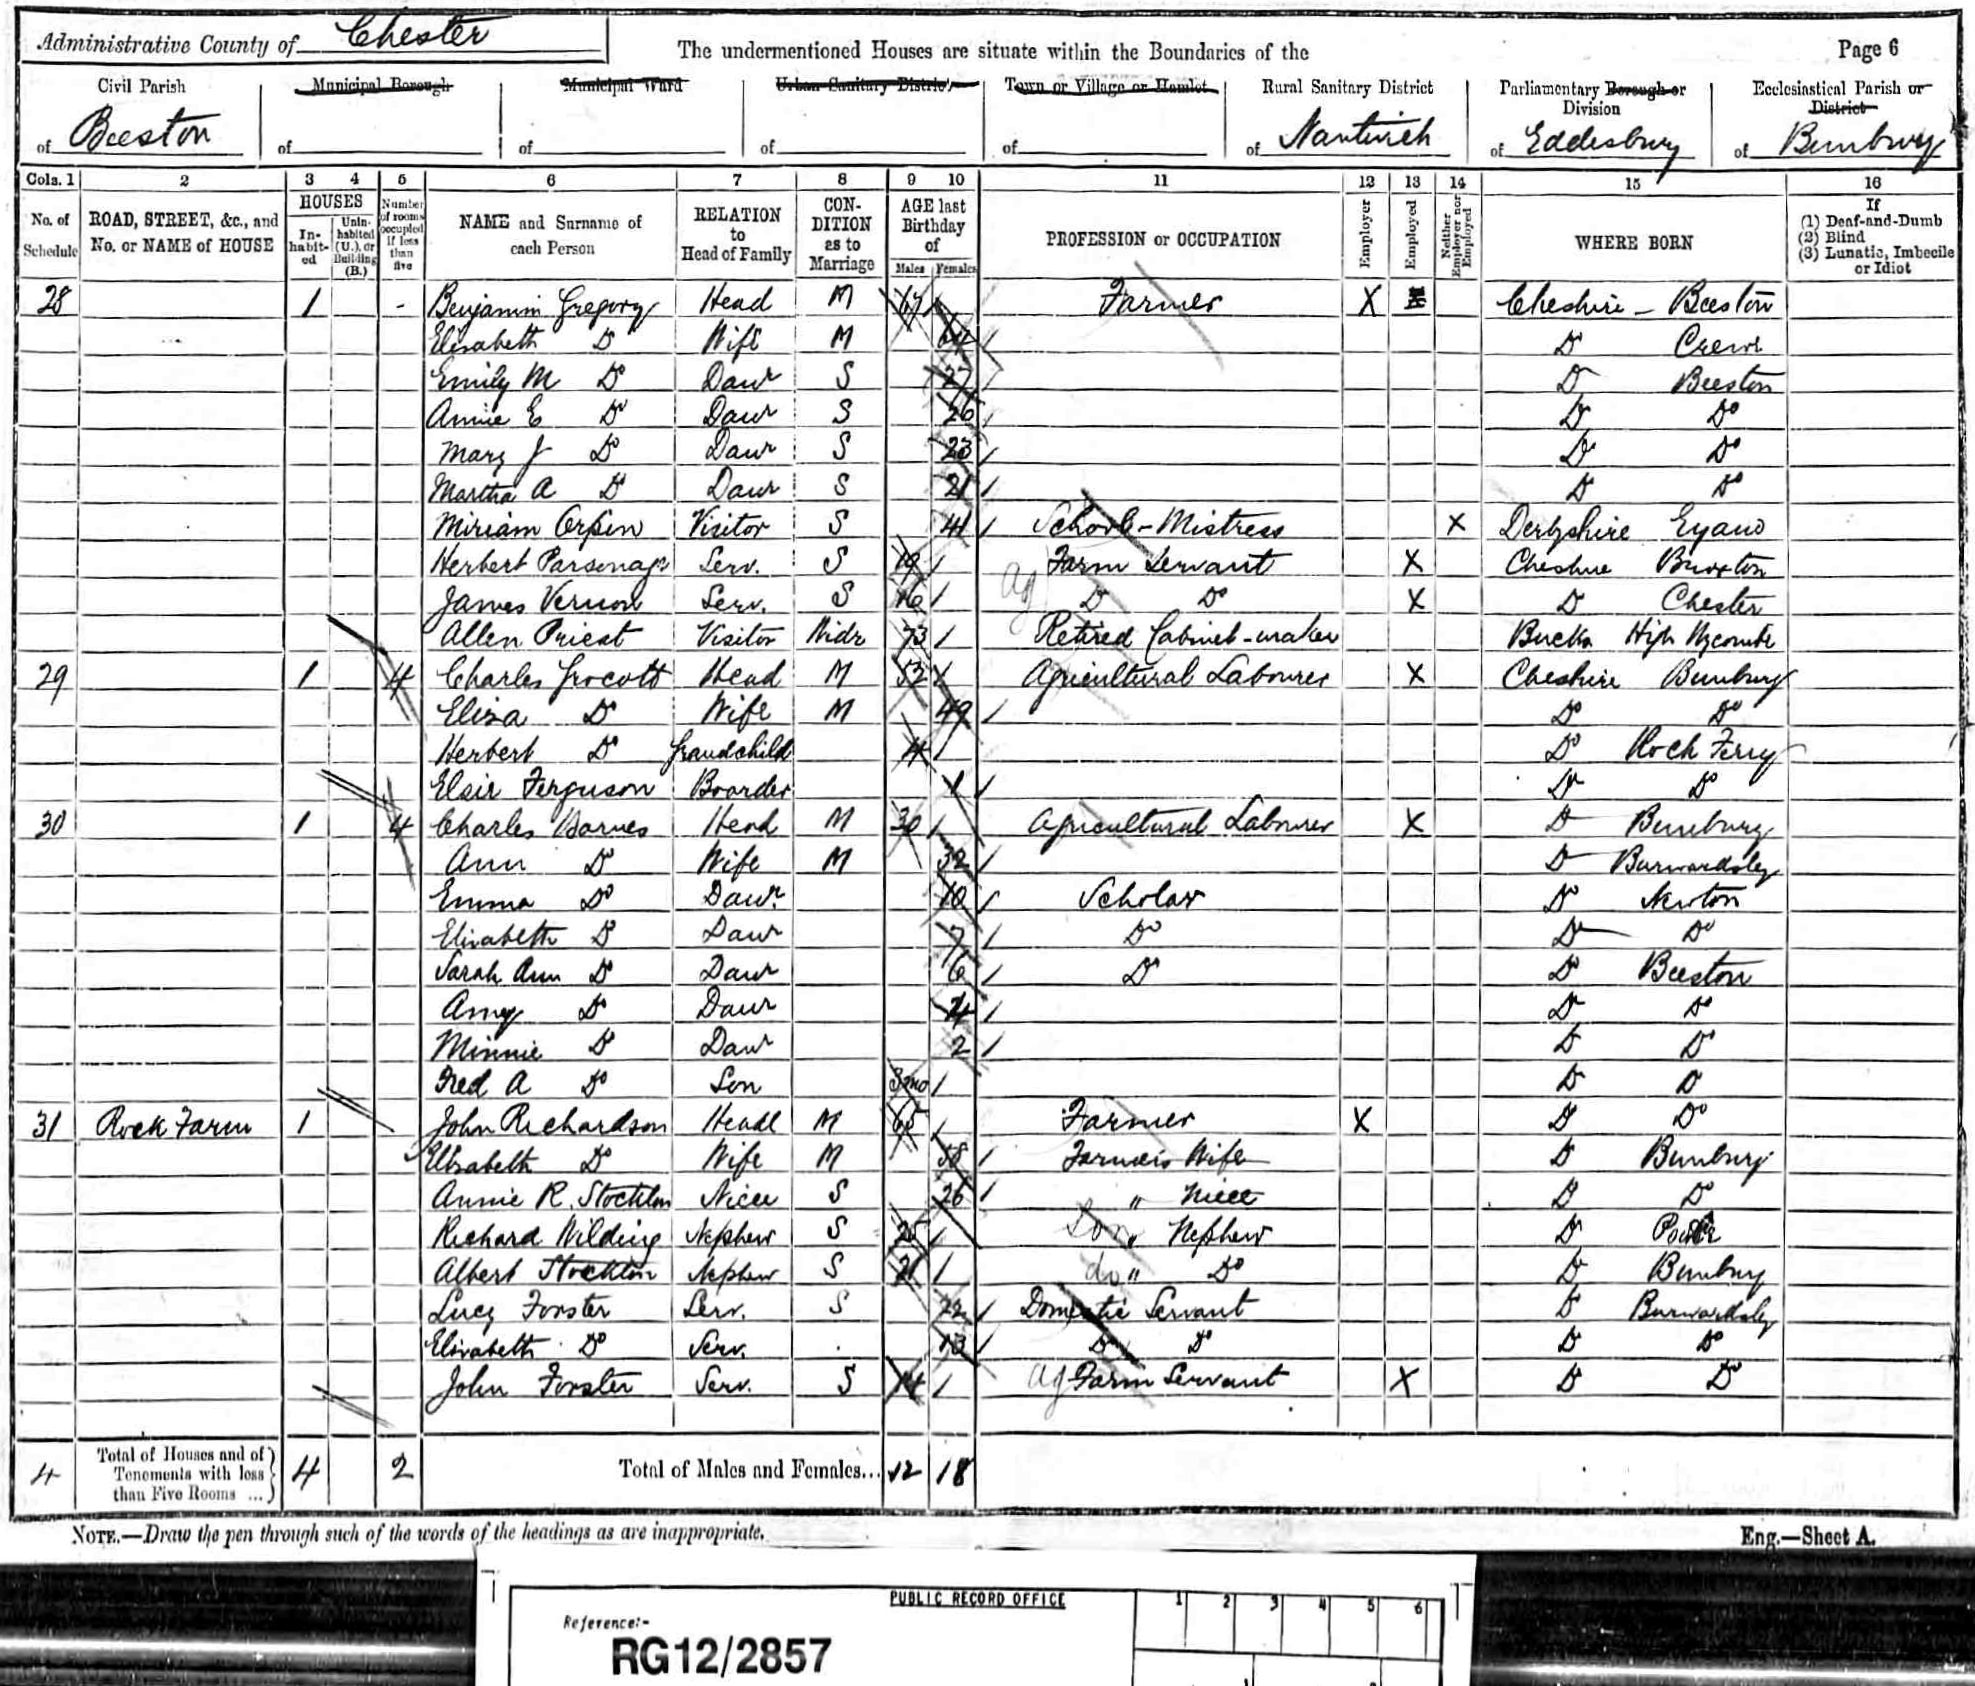 Administrative County of Chester
The undermentioned Houses are situate within the Boundaries of the
Page 6
Civil Parish of Beeston
Municipal Borough of
Municipal Ward of
Urban Sanitary District of
Town or Village or Hamlet of
Rural Sanitary District of Nantwich
Parliamentary Borough or Division of Eddisbury
Ecclesiastical Parish or District of Bunbury
Cols. 1 2 3 4 5 6 7 8 9 10 11 12 13 14 15 16
No. of Schedule
ROAD, STREET, &c., and No. or NAME of HOUSE
HOUSES
In-habit-ed
Unin-habited (U.), or Building (B.)
Number of rooms occupied if less than five
NAME and Surname of each Person
RELATION to Head of Family
CON-DITION as to Marriage
AGE last Birthday of
Males Females
PROFESSION or OCCUPATION
Employer
Employed
Neither Employer nor Employed
WHERE BORN
If
(1) Deaf-and-Dumb
(2) Blind
(3) Lunatic, Imbecile or Idiot
28 1 - Benjamin Gregory Head M 67 Farmer X Cheshire - Beeston
Elizabeth Do Wife M Do Crewe
Emily M Do Daur S 27 Do Beeston
Annie E Do Daur S 26 Do Do
Mary J Do Daur S 23 Do Do
Martha A Do Daur S 21 Do Do
Miriam Orpin Visitor S 41 School-Mistress X Derbyshire Eyam
Herbert Parsonage Serv. S 19 Ag Farm Servant X Cheshire
James Vernon Serv. S 16 Do Do X Do Chester
Allen Priest Visitor Widr 73 Retired Cabinet-maker Bucks High Wycombe
29 1 4 Charles Grocott Head M 52 Agricultural Labourer X Cheshire Bunbury
Eliza Do Wife M 49 Do Do
Herbert Do Grandchild 4 Do Rock Ferry
Elsie Ferguson Boarder 1 Do Do
30 1 4 Charles Barnes Head M 30 Agricultural Labourer X Do Bunbury
Ann Do Wife M 32 Do Burwardsley
Emma Do Daur. 10 Scholar Do Newton
Elizabeth Do Daur 7 Do Do Do
Sarah Ann Do Daur 6 Do Do Beeston
Amy Do Daur 4 Do Do
Minnie Do Daur 2 Do Do
Fred A Do Son 3mo Do Do
31 Rock Farm 1 John Richardson Head M 65 Farmer X Do Do
Elizabeth Do Wife M 58 Farmers Wife Do Bunbury
Annie R. Stockton Niece S 26 " Niece Do Do
Richard Wilding Nephew S 25 Son " Nephew Do
Albert Stockton Nephew S 21 do " Do Do Bunbury
Lucy Forster Serv. S 22 Domestic Servant Do Burwardsley
Elizabeth Do Serv. 13 Do Do Do Do
John Forster Serv. S 14 Ag Farm Servant X Do Do
4 Total of Houses and of Tenements with less than Five Rooms ... 4 2 Total of Males and Females... 12 18
NOTE.—Draw the pen through such of the words of the headings as are inappropriate.
Eng.—Sheet A.
PUBLIC RECORD OFFICE
1 2 3 4 5 6
Reference:-
RG12/2857